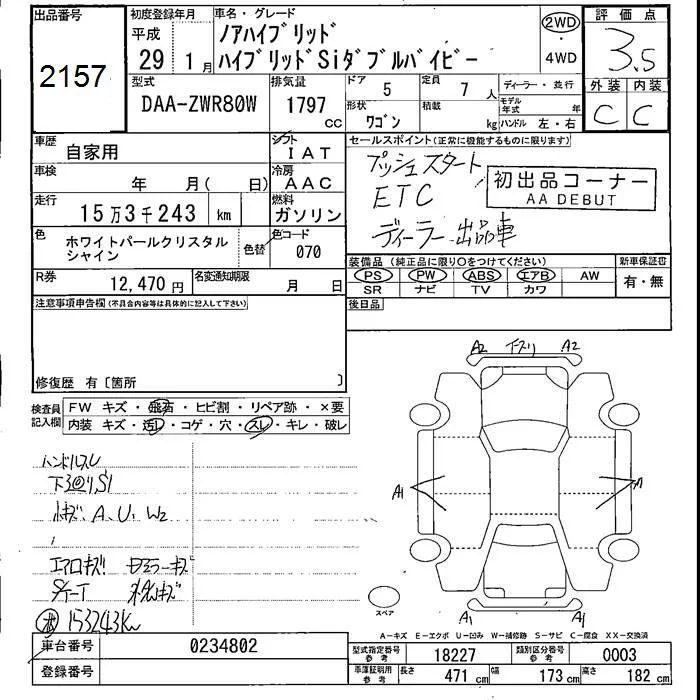 出品番号
2157
初度登録年月
平成
29 1月
車名・グレード
ノアハイブリッド
ハイブリッドSiダブルバイビー
2WD
・
4WD
評価点
3.5
外装 内装
C C
型式
DAA-ZWR80W
排気量
1797
cc
ドア
5
定員
7 人
形状
ワゴン
積載
kg
ディーラー・並行
モデル年式 年
ハンドル 左・右
車歴
自家用
シフト
IAT
車検
年 月( 日)
冷房
AAC
走行
15万3千243 km
燃料
ガソリン
色
ホワイトパールクリスタル
シャイン
色替
色コード
070
R券
12,470 円
名変通知期限
月 日
セールスポイント(正常に機能するものに限ります)
プッシュスタート
ETC
ディーラー出品車
初出品コーナー
AA DEBUT
装備品(純正品に限り○をつけてください)
PS PW ABS エアB AW
SR ナビ TV カワ
新車保証書
有・無
後日品
注意事項申告欄(不具合内容等は具体的に記入して下さい)
修復歴 有〔箇所 〕
検査員
記入欄
FW キズ・飛石・ヒビ割・リペア跡・×要
内装 キズ・汚レ・コゲ・穴・スレ・キレ・破レ
ハンドルスレ
A、U、W2
エアロキズ
153243Km
A2 A2
A1
A
A1 A1
スペア
A-キズ E-エクボ U-凹み W-補修跡 S-サビ C-腐食 XX-交換済
車台番号
0234802
登録番号
型式指定番号
参考
18227
類別区分番号
参考
0003
車庫証明用
参考
長さ 471 cm
幅 173 cm
高さ 182 cm